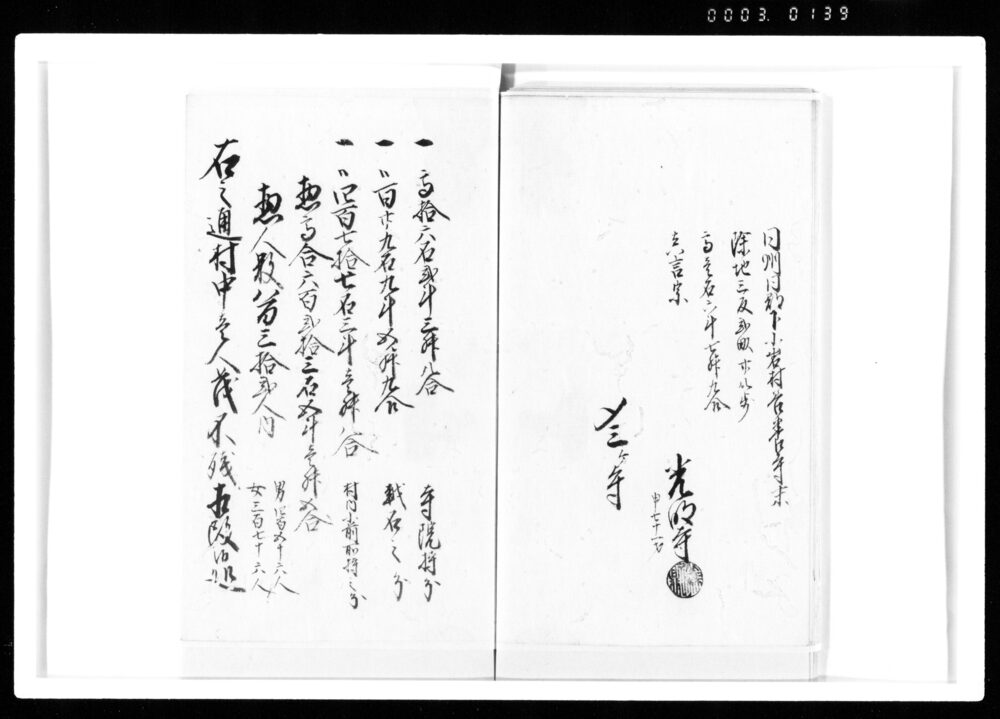 0003. 0139
同州同郡下小岩村善養寺末
除地三反弐畝廿八歩
高壱石六斗七舛九合
真言宗
光明寺
申七十一才
〆三ヶ寺
一 高拾六石弐斗三舛八合 寺院持分
一 〃百廿九石九斗五舛九合 越石之分
一 〃四百七拾七石三斗壱舛八合 村内小前所持之分
惣高合六百弐拾三石五斗壱舛五合
惣人数八百三拾弐人内 男四百五十六人
女三百七十六人
右之通村中壱人茂不残相改